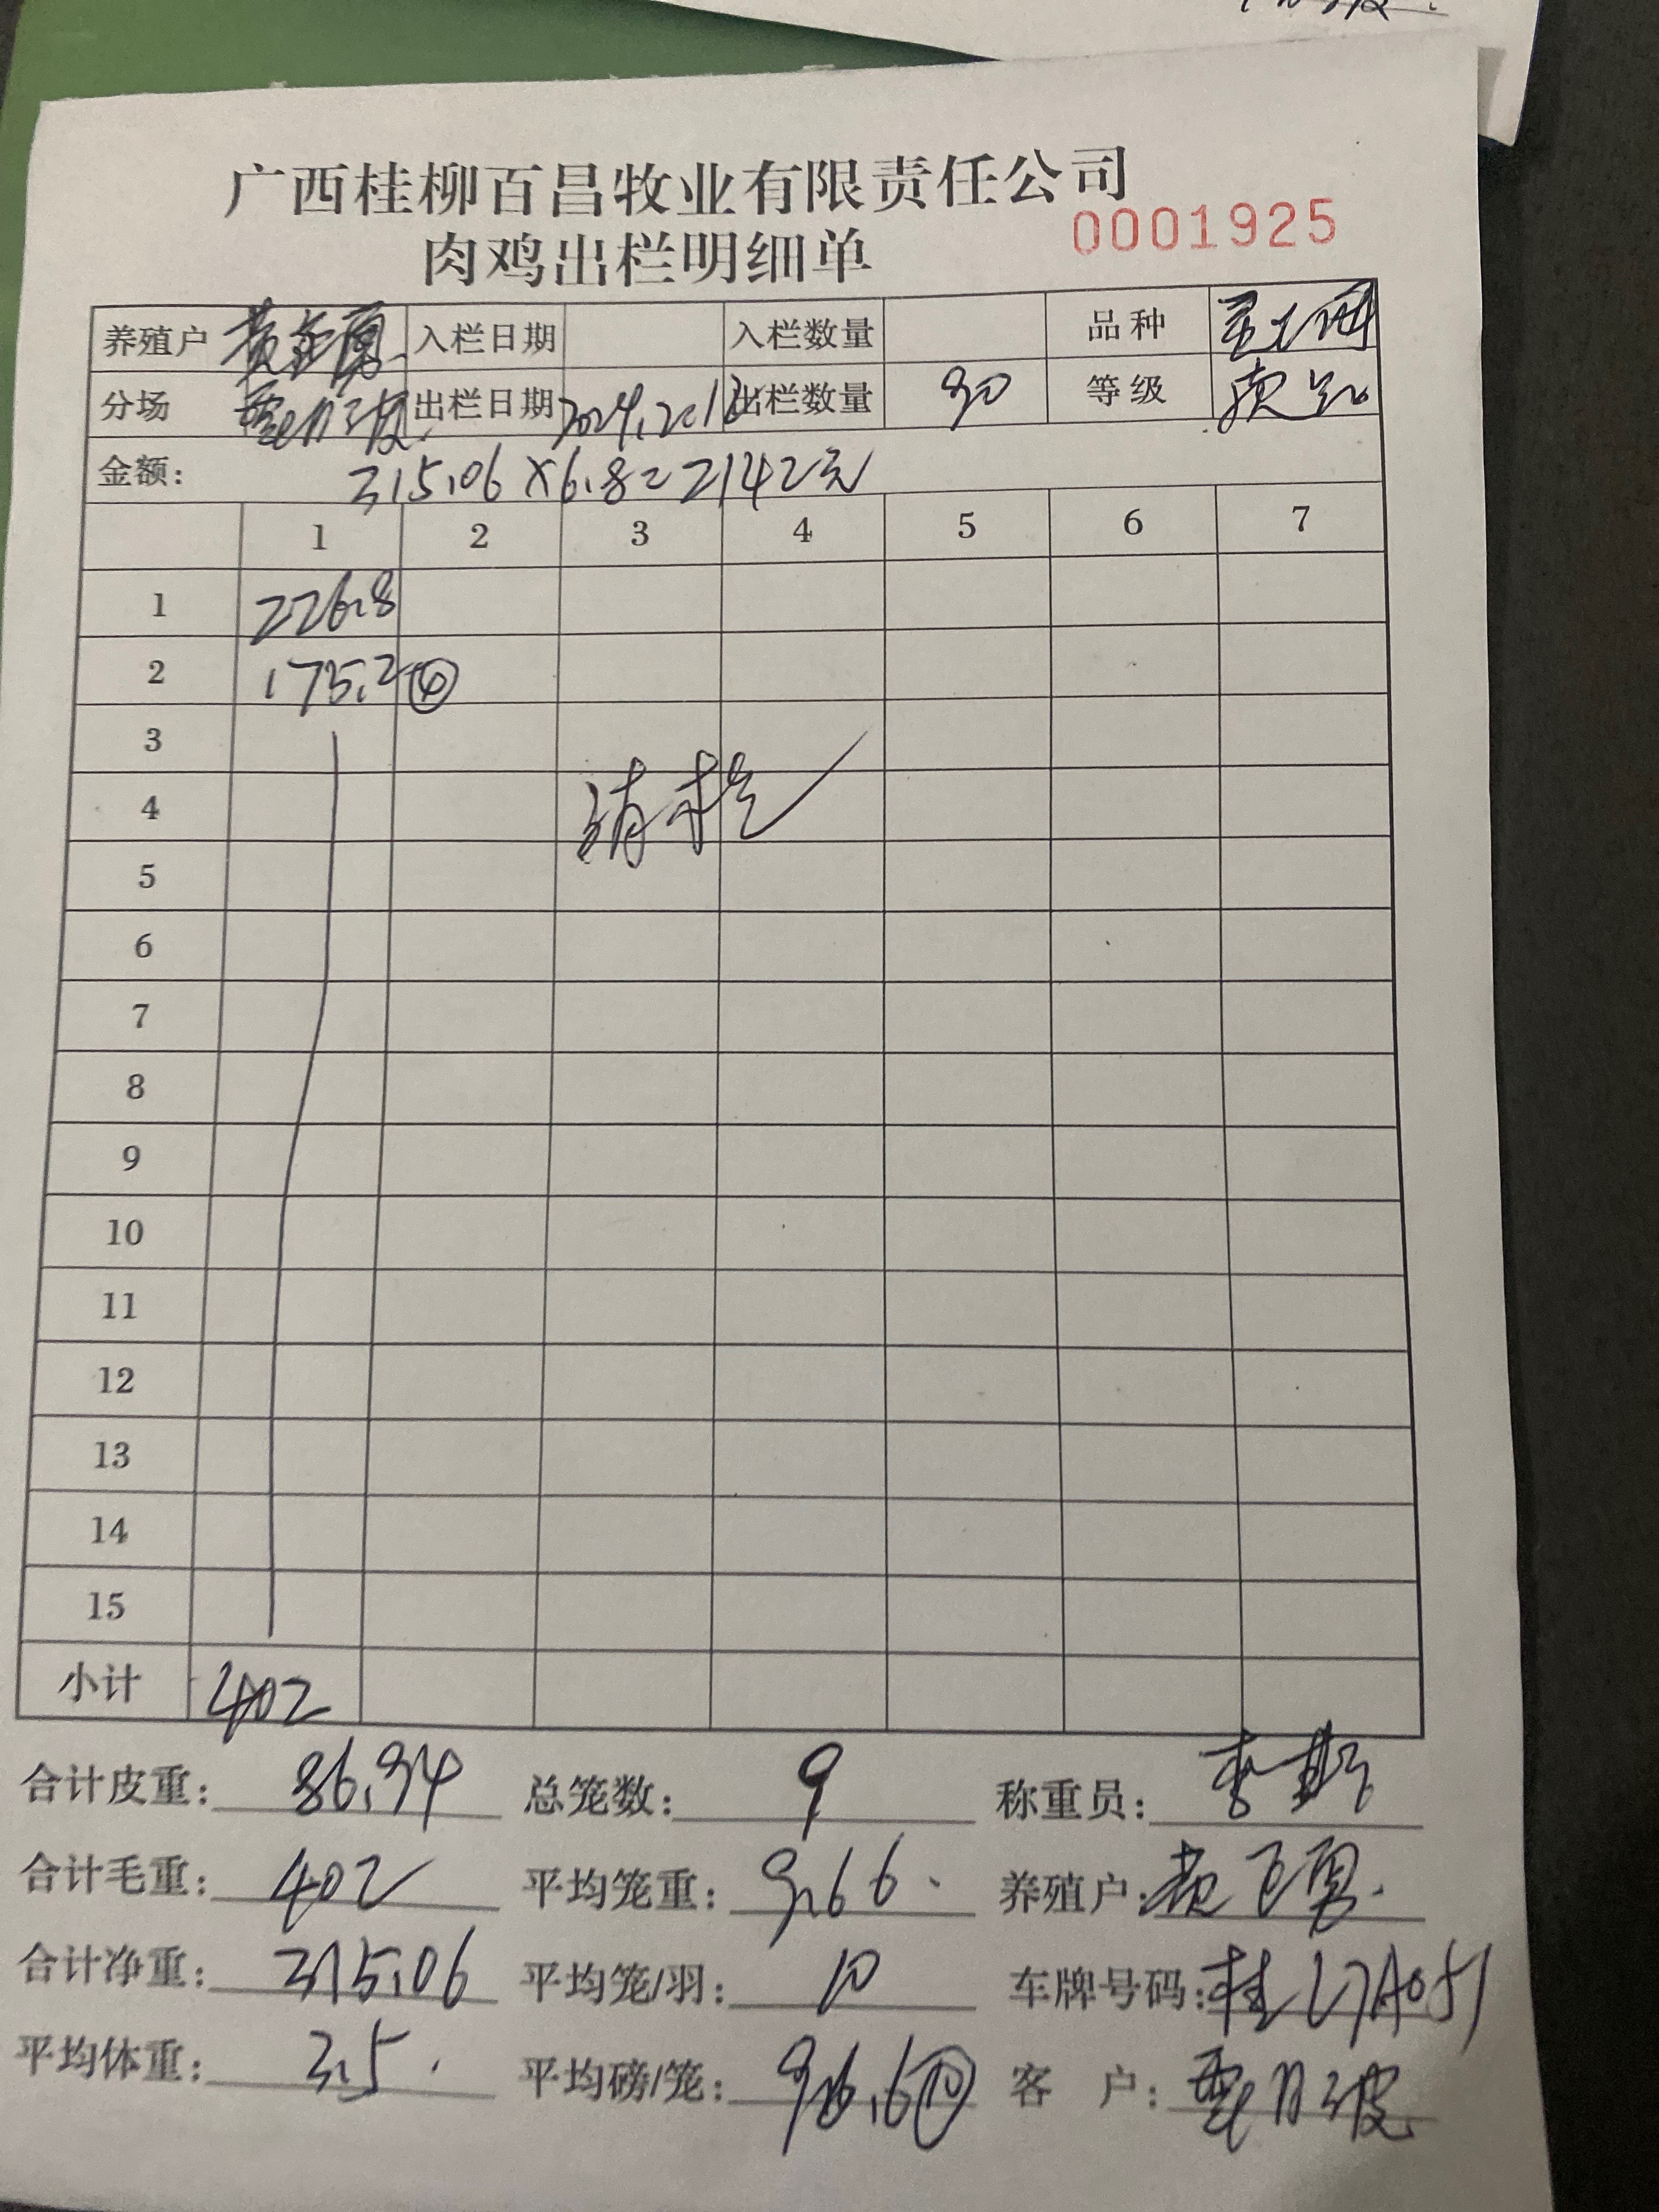 广西桂柳百昌牧业有限责任公司
肉鸡出栏明细单
0001925
养殖户 入栏日期 入栏数量 品种
分场 出栏日期 出栏数量 90 等级
金额: 315.06×6.8=2142元
1 2 3 4 5 6 7
1 226.8
2 175.2 ④
3
4
5
6
7
8
9
10
11
12
13
14
15
小计 402
合计皮重: 86.94 总笼数: 9 称重员: 李
合计毛重: 402 平均笼重: 9.66 养殖户:
合计净重: 315.06 平均笼/羽: 10 车牌号码: 桂
平均体重: 3.5 平均磅/笼: 客 户: